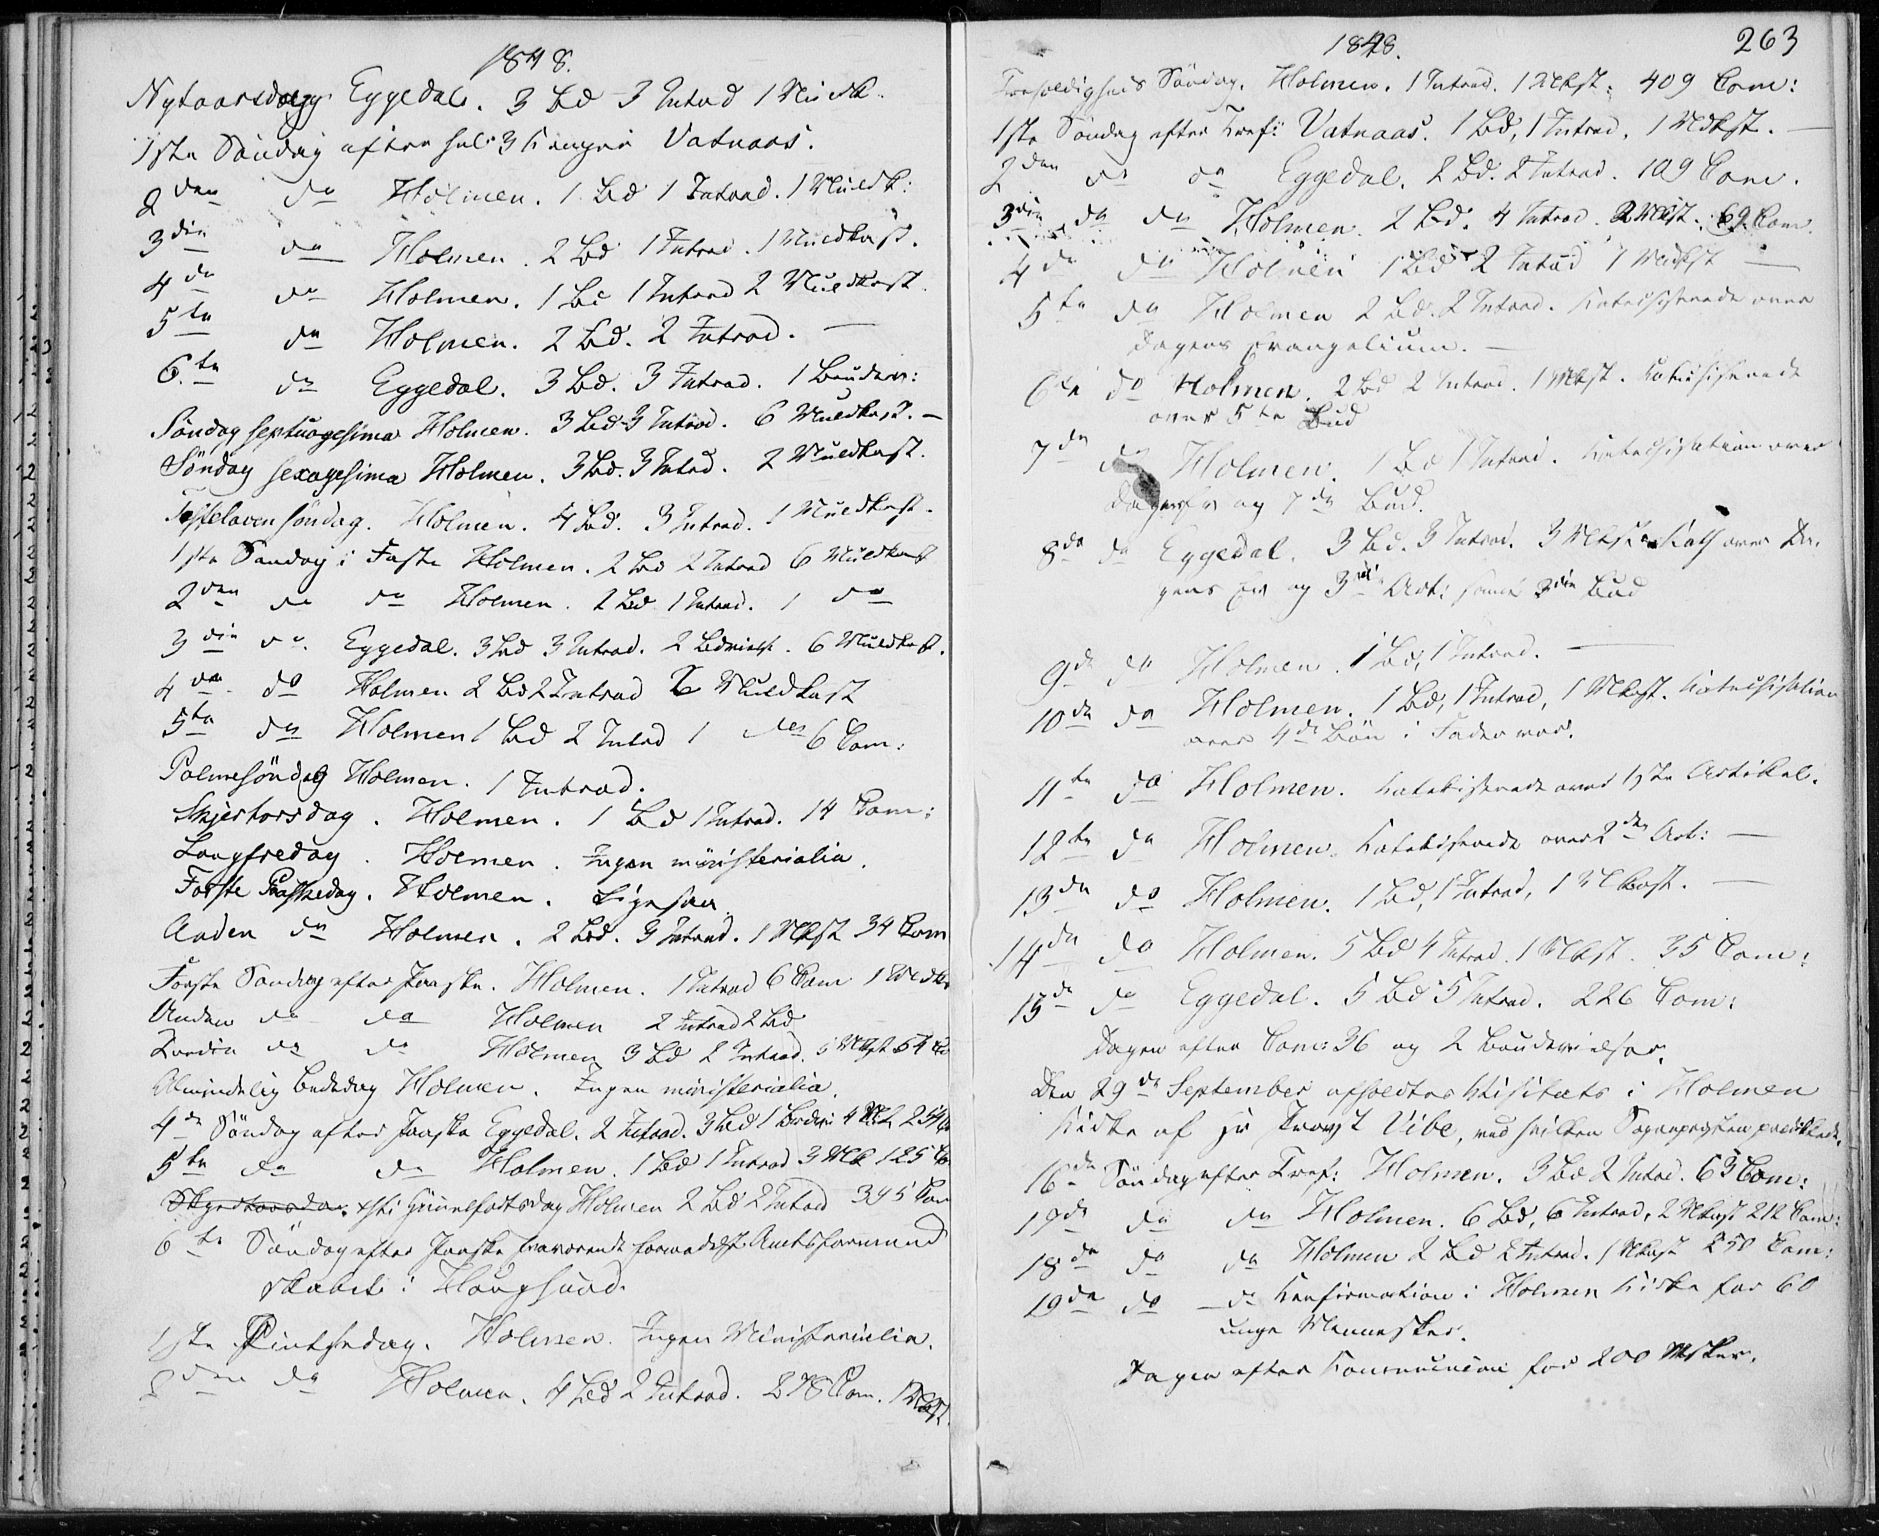 1848.
Nytaarsdag Eggedal. 3 Bd 3 Introd 1 Muldk.
1ste Søndag efter hel: 3 Konger Vatnaas.
2den do Holmen. 1 Bd 1 Introd. 1 Muldk:
3die do Holmen. 2 Bd 1 Introd. 1 Muldkast.
4de do Holmen. 1 Bd 1 Introd 2 Muldkast.
5te do Holmen. 2 Bd. 2 Introd. —
6te do Eggedal. 3 Bd. 3 Introd. 1 Brudevi:
Søndag septuagesima Holmen. 3 Bd 3 Introd. 6 Muldkast. —
Søndag sexagesima Holmen. 3 Bd. 3 Introd. 2 Muldkast.
Fastelavensøndag. Holmen. 4 Bd. 3 Introd. 1 Muldkast.
1ste Søndag i Faste Holmen. 2 Bd 2 Introd 6 Muldkast
2den do do Holmen. 2 Bd 1 Introd. 1 do
3die do. Eggedal. 3 Bd 3 Introd. 2 Bdvielse. 6 Muldkast.
4de do Holmen 2 Bd 2 Introd Muldkast
5te do Holmen 1 Bd 2 Introd 1 do 6 Com:
Palmesøndag Holmen. 1 Introd.
Skjertorsdag. Holmen. 1 Bd 1 Introd. 14 Com:
Langfredag. Holmen. Ingen ministerialia.
Første Paaskedag. Holmen. Ligesaa
Anden do Holmen. 2 Bd. 3 Introd. 1 Mkst 34 Com
Første Søndag efter Paaske. Holmen. 1 Introd 6 Com 1 Mldk
Anden do do Holmen 2 Introd 2 Bd
Tredie do do Holmen 3 Bd 2 Introd. 5 Mkst 54 Co
Almindelig Bededag Holmen. Ingen ministerialia.
4de Søndag efter Paaske Eggedal. 2 Introd. 3 Bd 1 Brdvi: 4 Mk 254
5te do do Holmen. 1 Bd 1 Introd 3 Mk 125 Co
Skjertorsdag. Xsti Himmelfartsdag Holmen 2 Bd 2 Introd 345 Com
6te Søndag efter Paaske fraværende formedelst Amtsformand
skabet i Hougsund.
1ste Pintsedag. Holmen. Ingen Ministerialia.
2den do Holmen. 4 Bd 2 Introd. 278 Com. 1 Mkst.
1848.
263
Trefoldigheds Søndag. Holmen. 1 Introd. 1 Mkst: 409 Com:
1ste Søndag efter Tref: Vatnaas. 1 Bd, 1 Introd. 1 Mdkst. —
2den do do Eggedal. 2 Bd. 2 Introd. 109 Com.
3die do do Holmen. 2 Bd. 4 Introd. 2 Mkst. 69 Com.
4de do Holmen 1 Bd 2 Introd 1 Mdkst —
5te do Holmen 2 Bd. 2 Introd. Katechiserede over
Dagens Evangelium. —
6te do Holmen. 2 Bd 2 Introd. 1 Mkst. Katechiserede
over 5te Bud
7de do Holmen. 1 Bd 1 Introd. Katechisation over
Dagens Ev og 7de Bud.
8de do Eggedal. 3 Bd. 3 Introd. 3 Mkst. Kath over Da-
gens Ev og 3die Art: samt 3die Bud
9de do Holmen. 1 Bd, 1 Introd. —
10de do Holmen. 1 Bd, 1 Introd, 1 Mkst. Katechisation
over 4de Bøn i Fader vor.
11te do Holmen. Katekiserede over 1ste Artikel.
12te do Holmen. Katekiserede over 2den Art: —
13de do Holmen. 1 Bd, 1 Introd, 1 Mkast. —
14de do Holmen. 5 Bd 4 Introd. 1 Mkst. 35 Com:
15de do Eggedal. 5 Bd 5 Introd. 226 Com:
Dagen efter Com: 36 og 2 Brudevielser.
Den 29de September afholdtes Visitats i Holmen
Kirke af Hr Provst Vibe, ved hvilken Sognepresten prædikede.
16de Søndag efter Tref: Holmen. 3 Bd 2 Introd. 63 Com:
17de do do Holmen. 6 Bd, 6 Introd, 2 Mkast 212 Com:
18de do do Holmen 2 Bd 2 Introd. 1 Mkast 250 Com:
19de do do Konfirmation i Holmen Kirke for 60
unge Mennesker.
Dagen efter Kommunion for 200 Msker.